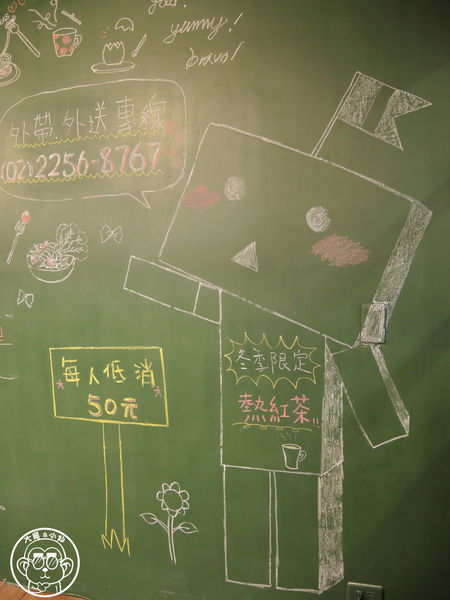 yummy!
bravo!
外帶.外送專線
(02)2256-8767
每人低消
50元
冬季限定
熱紅茶!!